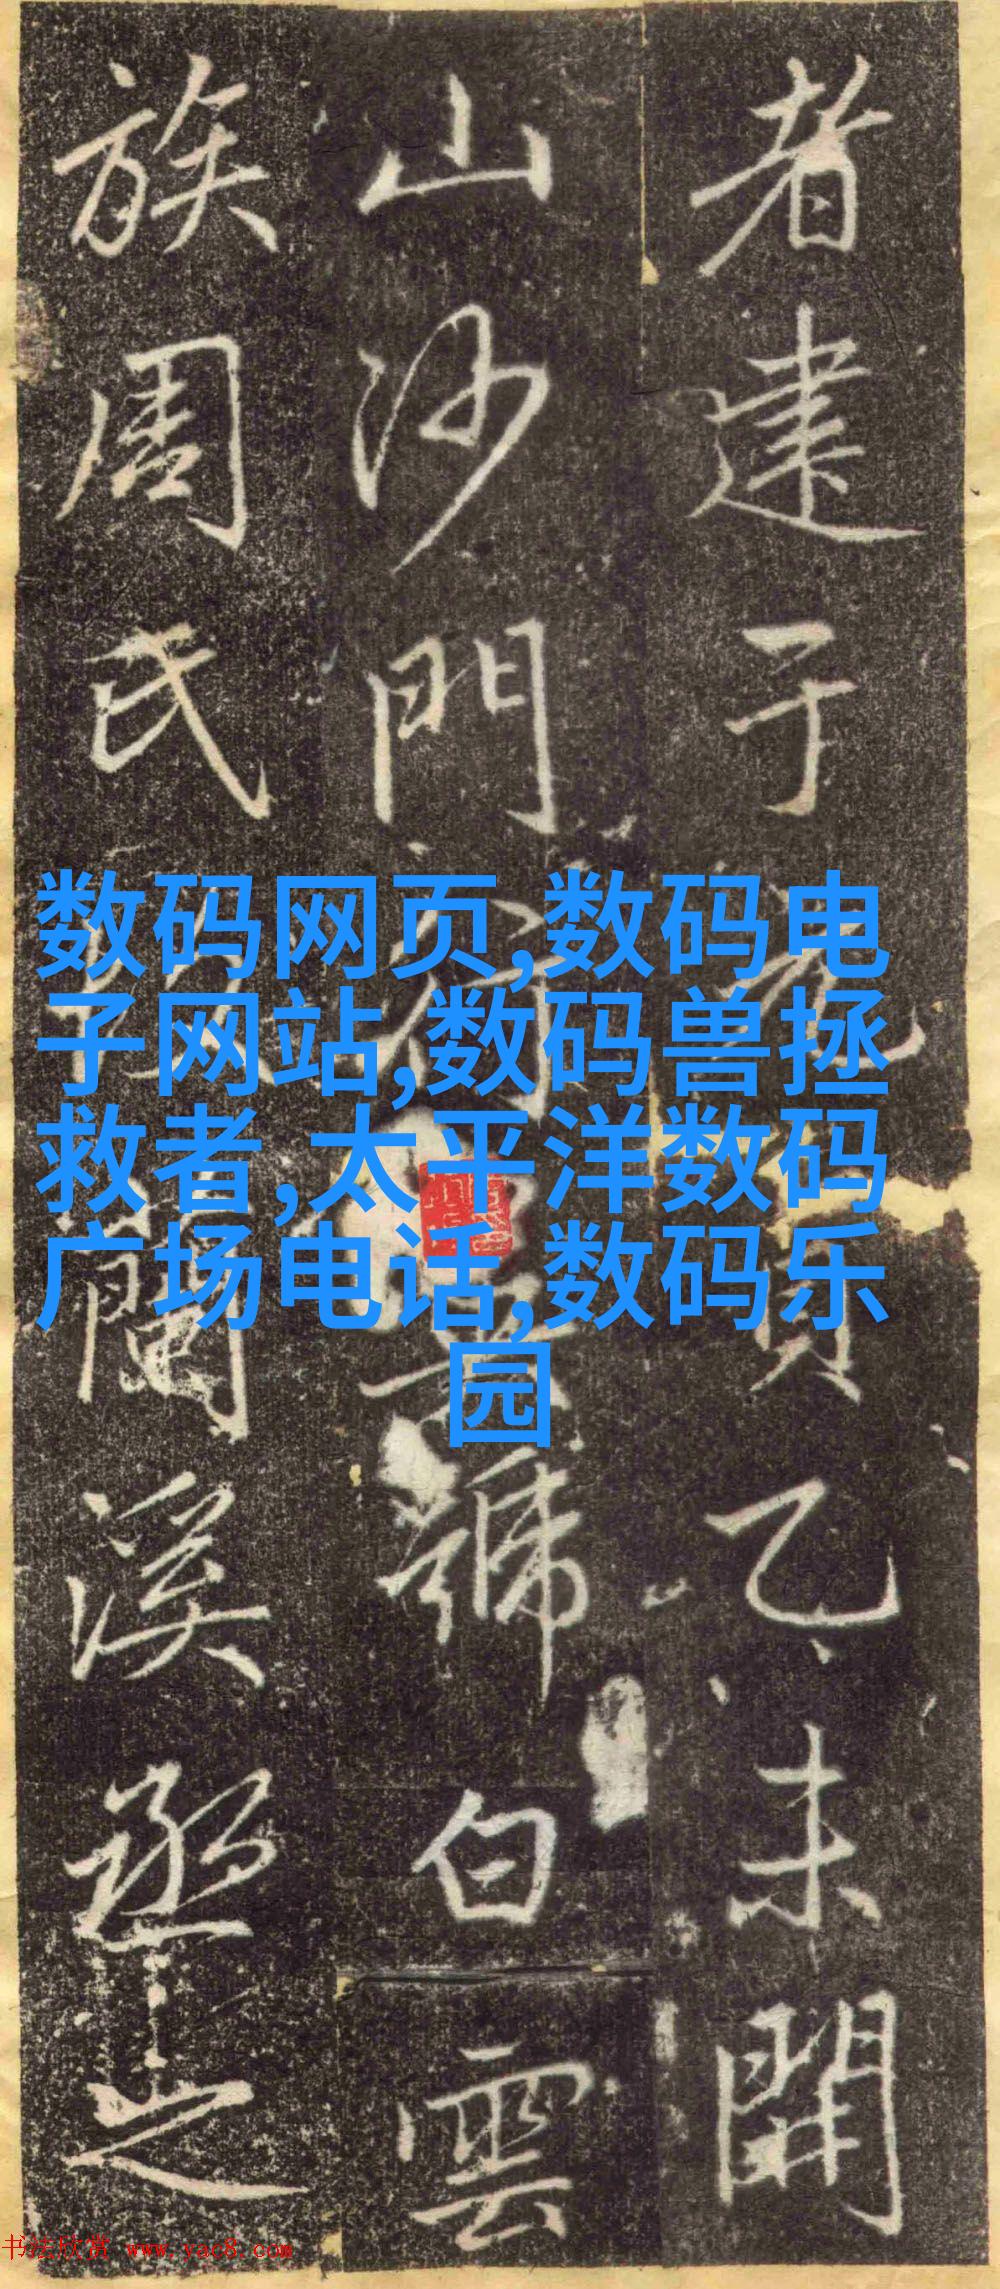 者建于元貞乙未開
山沙門
號白雲
族周氏
蘭溪丞之
数码网页,数码电
子网站,数码兽拯
救者,太平洋数码
广场电话,数码乐
园
书法欣赏 www.yac8.com